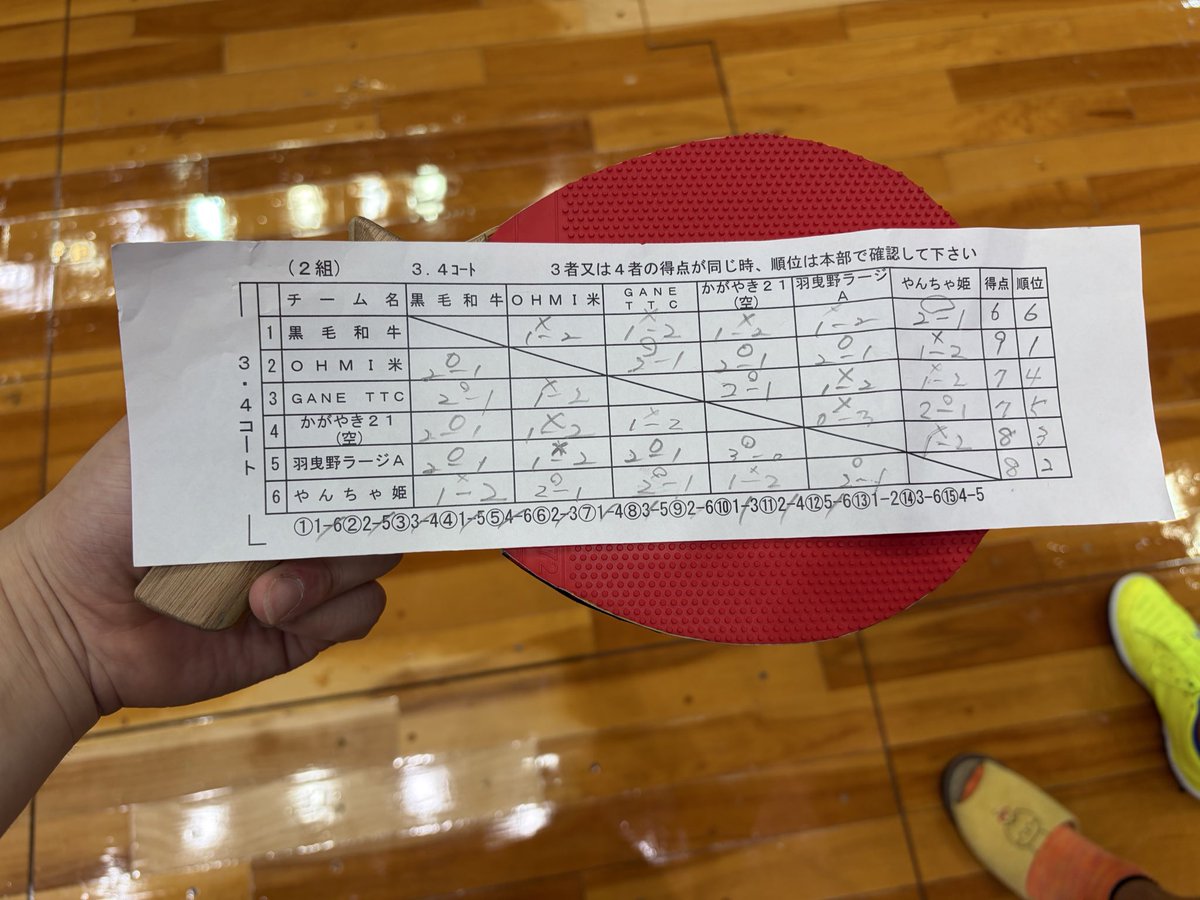 (2組) 3.4コート 3者又は4者の得点が同じ時、順位は本部で確認して下さい
チーム名 黒毛和牛 OHMI米 GANE TTC かがやき21(空) 羽曳野ラージA やんちゃ姫 得点 順位
1 黒毛和牛 × 1-2 × 1-2 × 1-2 1-2 2-1 6 6
2 OHMI米 ○ 2-1 ○ 2-1 ○ 2-1 ○ 2-1 × 1-2 9 1
3 GANE TTC ○ 2-1 × 1-2 ○ 2-1 × 1-2 × 1-2 7 4
4 かがやき21(空) ○ 2-1 × 1-2 × 1-2 × 0-3 ○ 2-1 7 5
5 羽曳野ラージA ○ 2-1 × 1-2 ○ 2-1 ○ 3-0 × 1-2 8 3
6 やんちゃ姫 × 1-2 ○ 2-1 ○ 2-1 × 1-2 ○ 2-1 8 2
①1-6②2-5③3-4④1-5⑤4-6⑥2-3⑦1-4⑧3-5⑨2-6⑩1-3⑪2-4⑫5-6⑬1-2⑭3-6⑮4-5
3・4コート